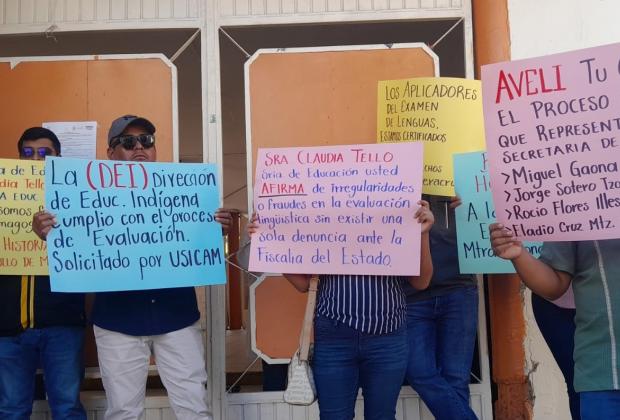 La (DEI) Dirección
de Educ. Indígena
cumplio con el proceso
de Evaluación.
Solicitado por USICAM
Sra Claudia Tello
Sria de Educación usted
AFIRMA de irregularidades
o fraudes en la evaluación
lingüística sin existir una
sola denuncia ante la
Fiscalia del Estado.
Los Aplicadores
del Examen
de Lenguas,
Estamos certificados
Aveli Tu
el Proceso
que Represent
Secretaria de
> Miguel Gaona
> Jorge Sotero
> Rocio Flores Illes
> Eladio Cruz Mtz.